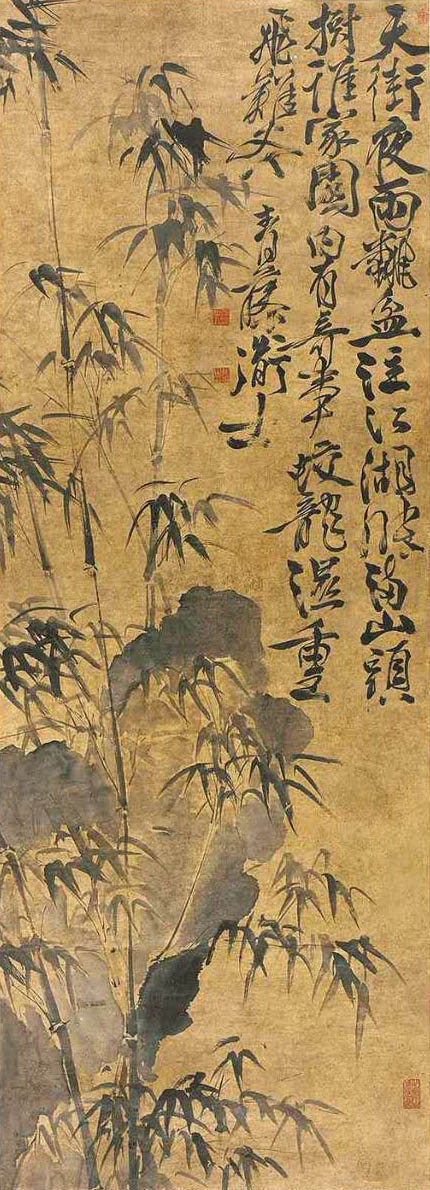 天街夜雨翻盆注江湖漲滿山頭
樹誰家園內有奇事蛟龍濕重
飛難去
青藤道士